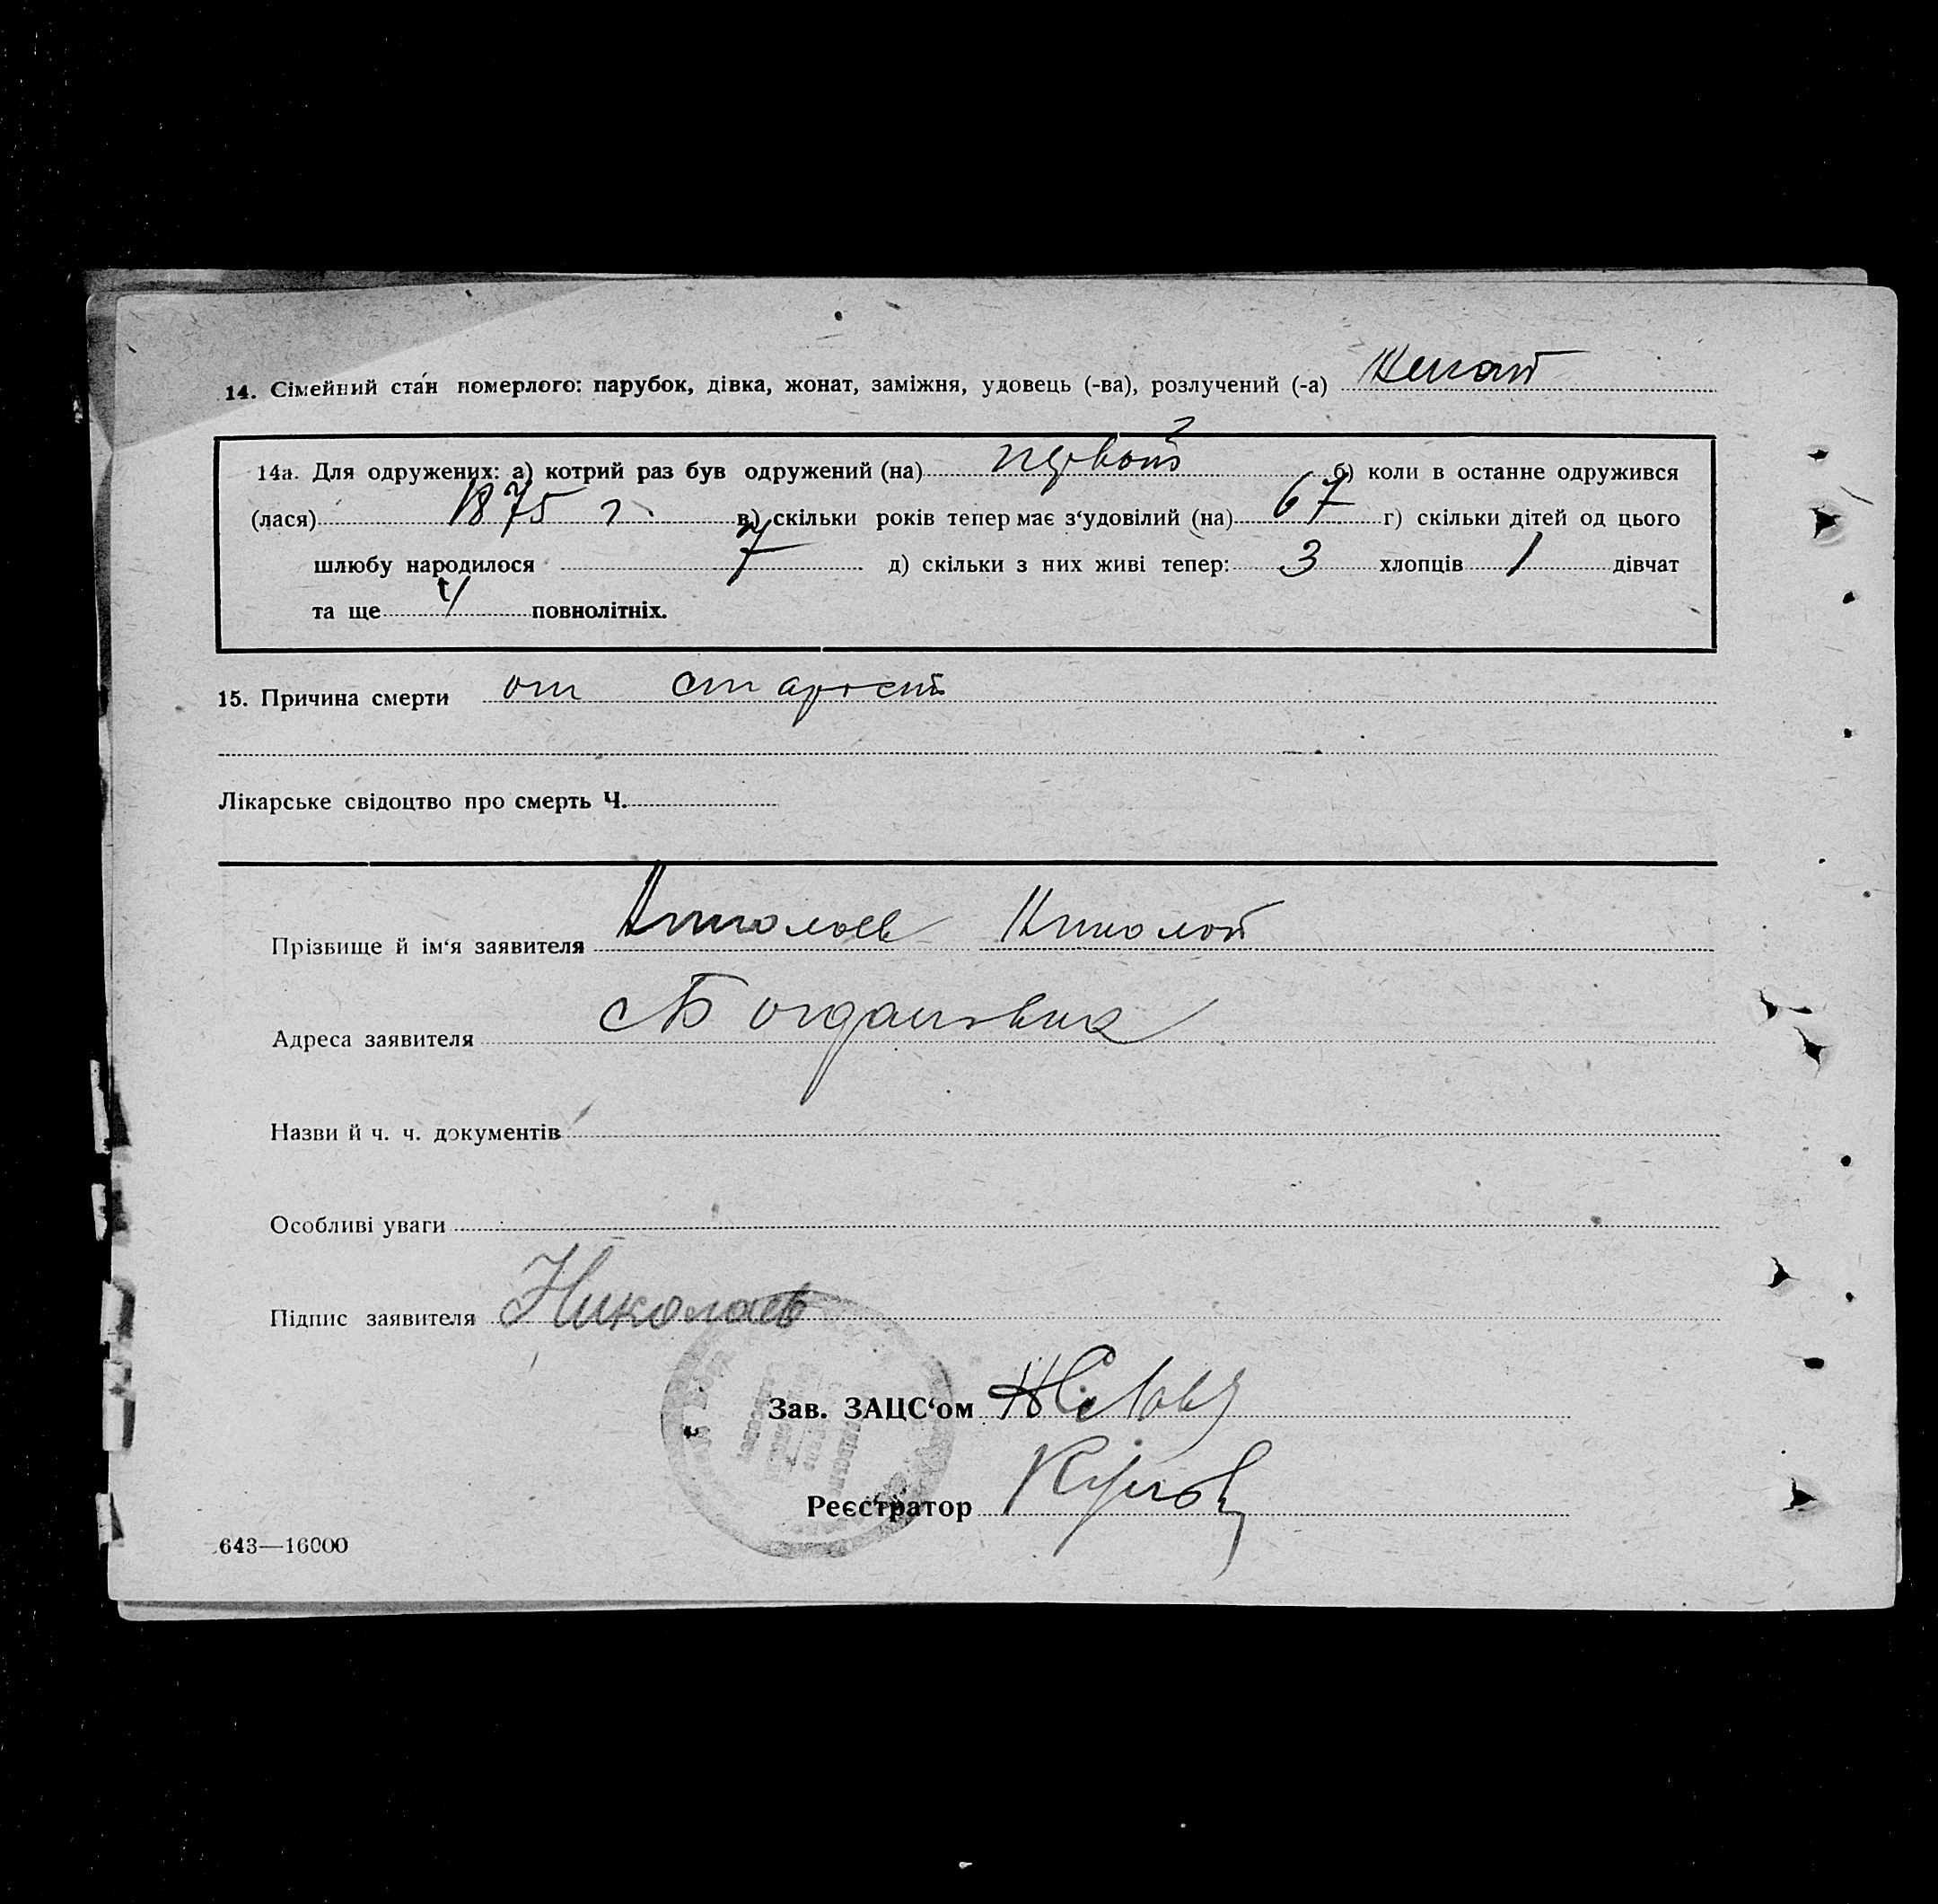 14. Сімейний стан померлого: парубок, дівка, жонат, заміжня, удовець (-ва), розлучений (-а) Женат
14а. Для одружених: а) котрий раз був одружений (на) первой б) коли в останне одружився
(лася) 1875 г. в) скільки років тепер має з‘удовілий (на) 67 г) скільки дітей од цього
шлюбу народилося 7 д) скільки з них живі тепер: 3 хлопців 1 дівчат
та ще 4 повнолітніх.
15. Причина смерти от старости
Лікарське свідоцтво про смерть Ч.
Прізвище й ім‘я заявителя Николаев Николай
Адреса заявителя с Богдановка
Назви й ч. ч. документів
Особливі уваги
Підпис заявителя Николаев
Зав. ЗАЦС‘ом
Реєстратор
643—16000